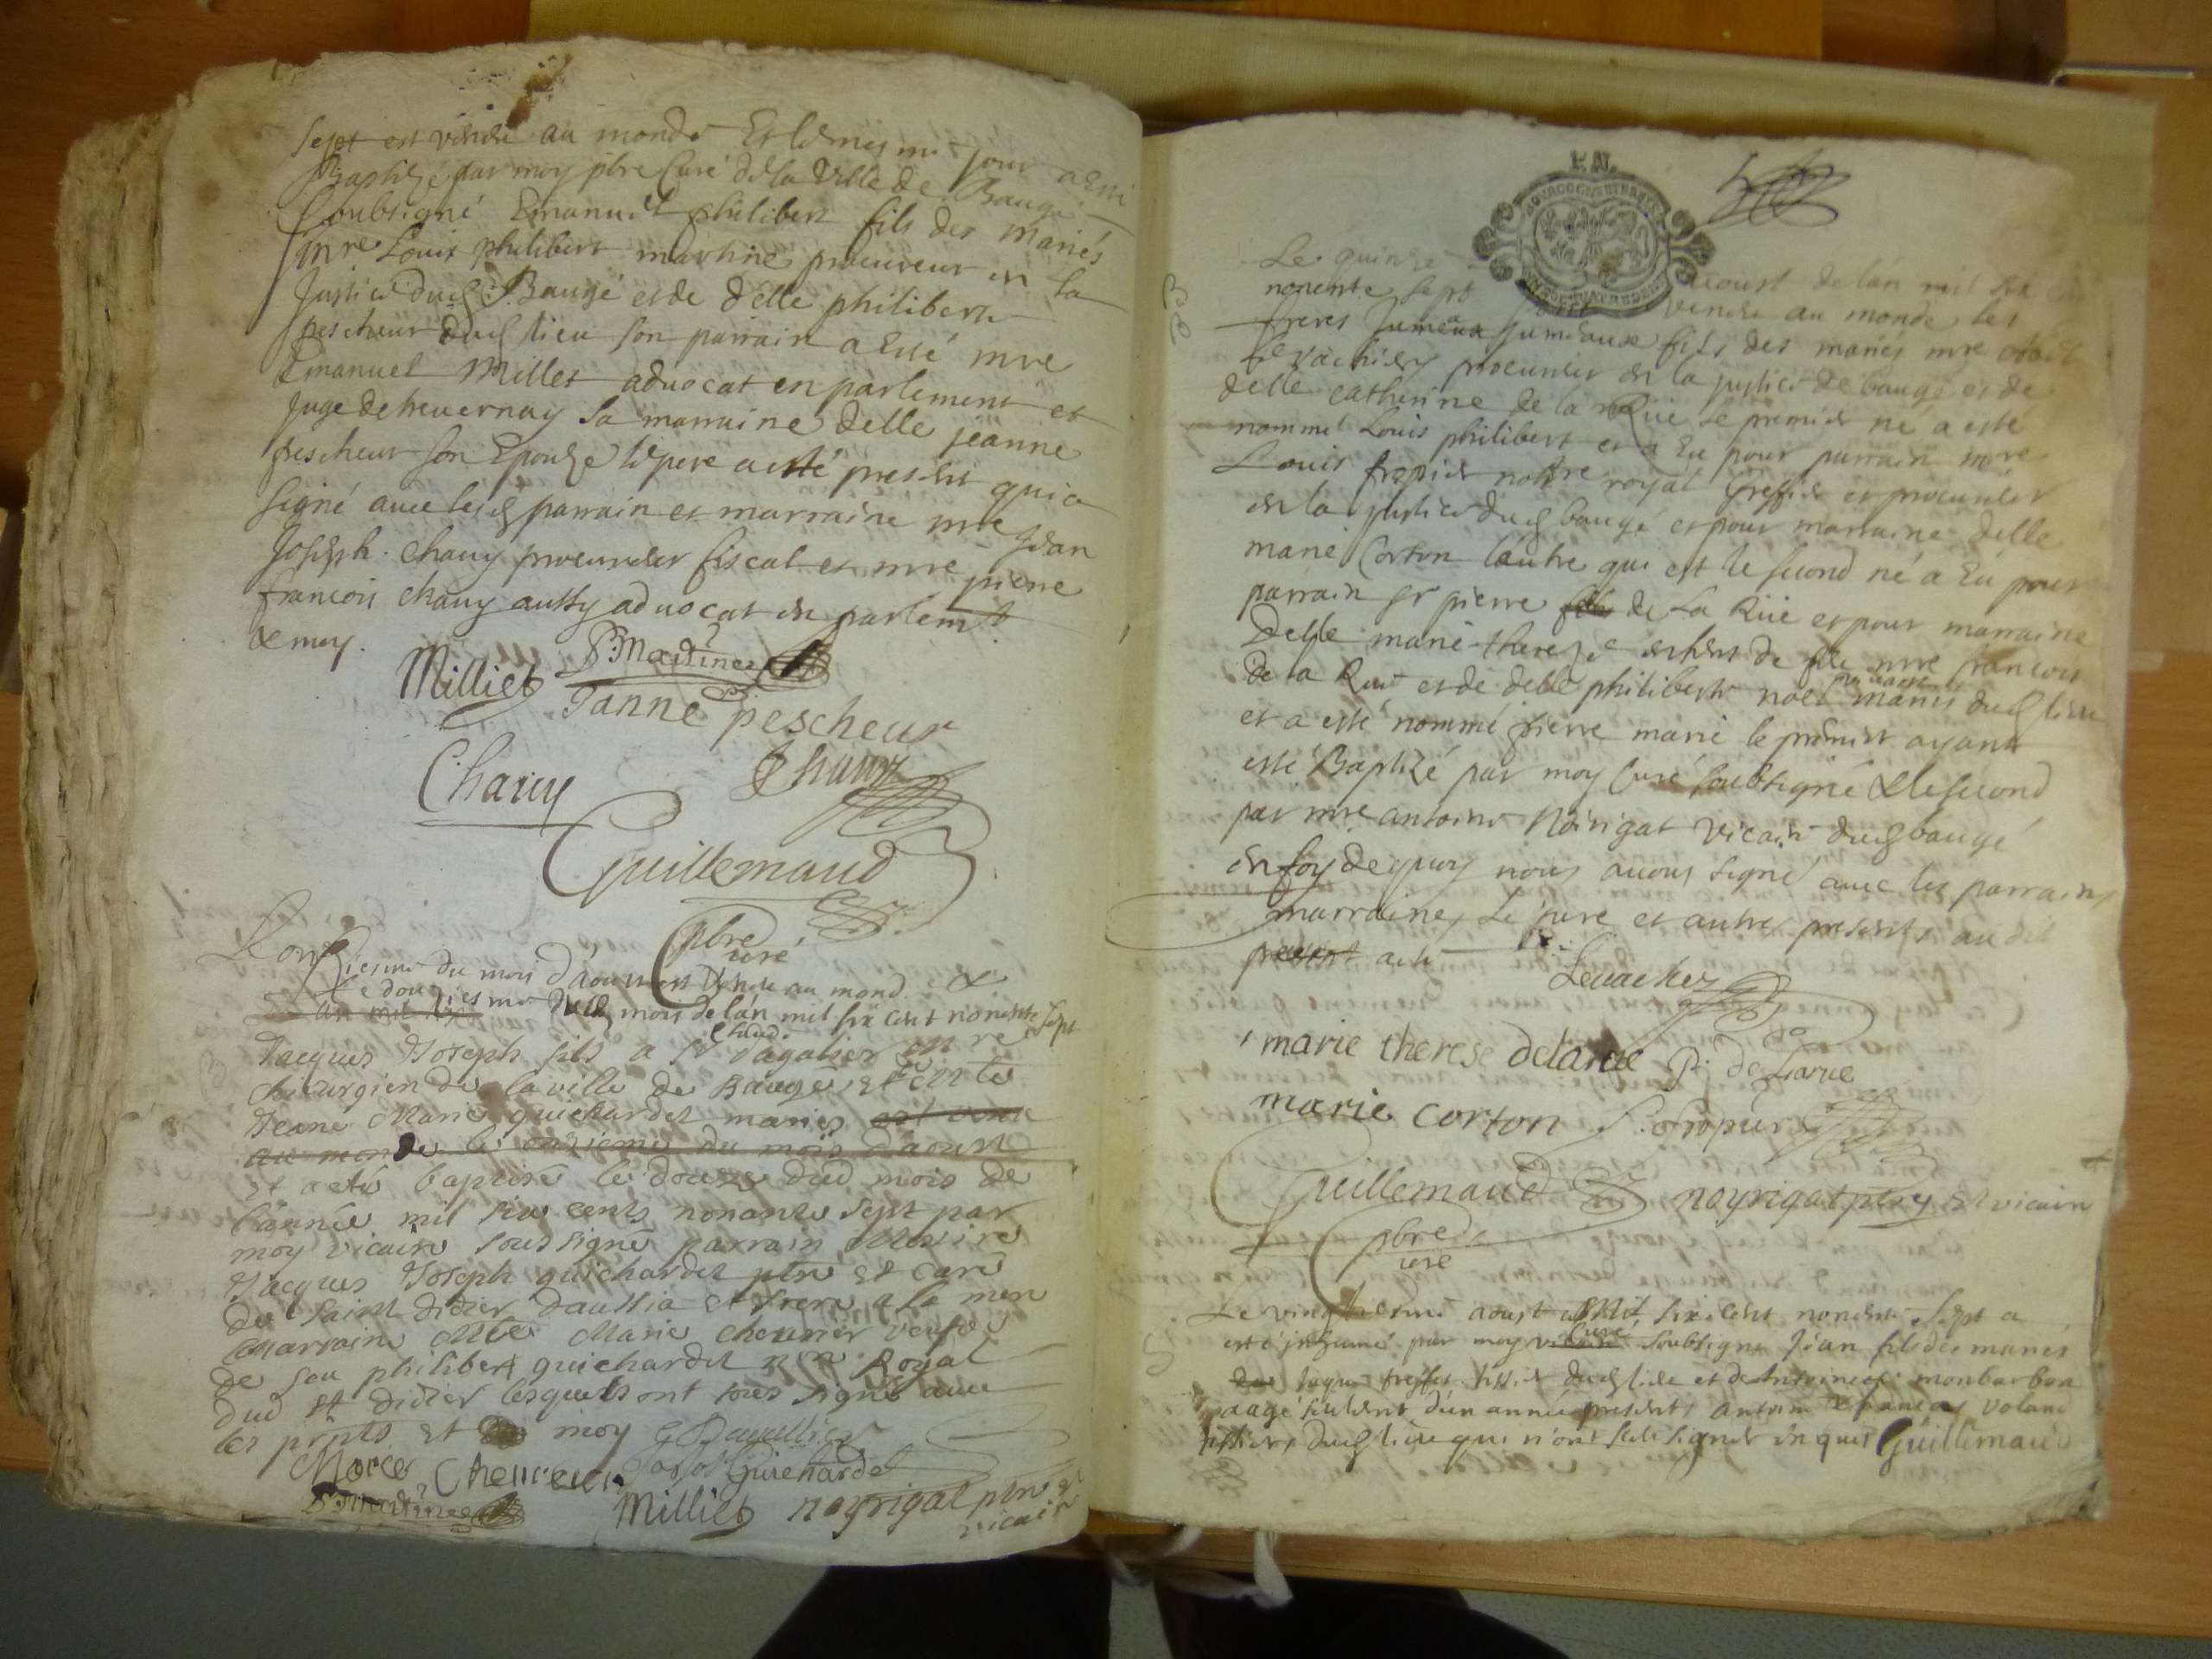 sept est venu au monde Et le mesme jour a esté
Baptizé par moy pbre Curé de la Ville de Baugé
soubsigné Emanuel philibert fils des mariés
mre Louis philibert martine procureur en la
Justice dud Baugé et de delle philiberte
pescheur dud lieu son parrain a Esté mre
Emanuel Milliet advocat en parlement et
Juge de la marraine delle jeanne
pescheur son Epouze le pere a esté present qui a
signé avec lesd parrain et marraine mre Jean
Joseph Chavy procureur fiscal et mre pierre
francois Chavy aussy advocat en parlemt
& moy.
Milliet P Martine
Janne pescheur
Chavy Chavy
Guillemaud
pbre
curé
L'onziesme du mois d'aoust est venu au monde &
Le douziesme dud mois de l'an mil six cent nonente sept
Jacques Joseph fils a sr Claude
chirurgien de la ville de Baugé et de
Jeane Marie guichardet mariés est venu
au monde le onzieme du mois d'aoust
et a eté baptisé le douze dud mois de
l'année mil six cents nonante sept par
moy vicaire soussigné parrain Messire
Jacques Joseph guichardet ptre et curé
de saint didier daussia et frere a la mere
marraine Marie chevrier veufve
de feu philibert guichardet Royal
dud st didier lesquels ont tous signé avec
les pñts et moy
Chevrier Guichardet
P Martine Milliet noyrigat ptre et
vicaire
P.N.
Le quinze aoust de l'an mil six
nonente sept sont venus au monde les
freres Jumeaux jumeaux fils des mariés mre
Levacher procureur en la justice de baugé et de
delle catherine de la Rüe le premier né a esté
nommé Louis philibert et a Eu pour parrain mre
Louis fropier nottre royal Greffier et procureur
en la justice dud baugé et pour marraine delle
marie Corton l'autre qui est le second né a Eu pour
parrain sr pierre de La Rüe et pour marraine
Delle marie therese de mre francois
de la Rue et de delle philiberte noel mariés dud lieu
et a esté nommé pierre marie le premier ayant
esté Baptizé par moy Curé soubsigné & le second
par mre antoine Noirigat vicaire dud baugé
en foy de quoy nous avons signé avec les parrains
marraines Le pere et autres presents au dit
present acte
Levacher
marie therese delarue P. de Larue
marie corton L. fropier
Guillemaud noyrigat ptre et vicaire
pbre
curé
Le vingtiesme aoust mil six cent nonente sept a
esté inhumé par moy vicaire Curé soubsigné Jean fils des mariés
Jaques tissier dud lieu et de Antoinette monbarbon
aagé seulement d'un année presents antoine Voland
tissiers dud lieu qui n'ont sceu signer enquis Guillemaud